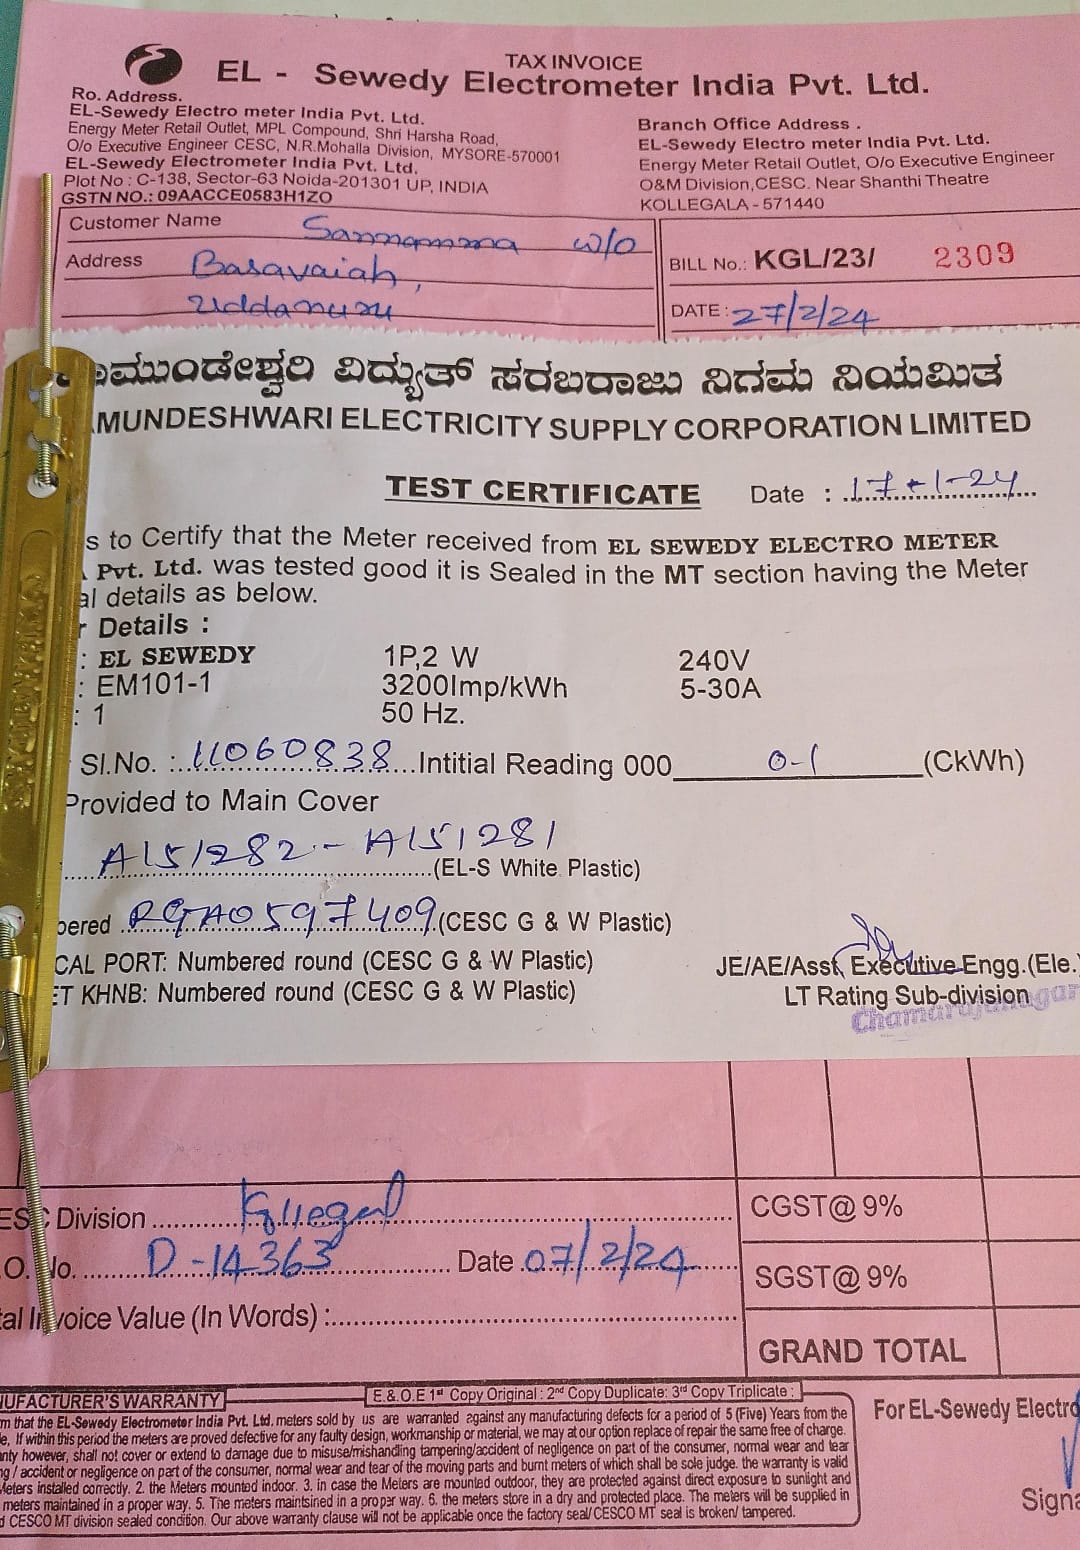 TAX INVOICE
EL - Sewedy Electrometer India Pvt. Ltd.
Ro. Address.
EL-Sewedy Electro meter India Pvt. Ltd.
Energy Meter Retail Outlet, MPL Compound, Shri Harsha Road,
O/o Executive Engineer CESC, N.R.Mohalla Division, MYSORE-570001
EL-Sewedy Electrometer India Pvt. Ltd.
Plot No : C-138, Sector-63 Noida-201301 UP, INDIA
GSTN NO.: 09AACCE0583H1ZO
Branch Office Address .
EL-Sewedy Electro meter India Pvt. Ltd.
Energy Meter Retail Outlet, O/o Executive Engineer
O&M Division,CESC. Near Shanthi Theatre
KOLLEGALA - 571440
Customer Name Sannamma w/o
Address Basavaiah,
Uddanuru
BILL No.: KGL/23/ 2309
DATE : 27/2/24
ಾಮುಂಡೇಶ್ವರಿ ವಿದ್ಯುತ್ ಸರಬರಾಜು ನಿಗಮ ನಿಯಮಿತ
MUNDESHWARI ELECTRICITY SUPPLY CORPORATION LIMITED
TEST CERTIFICATE Date : 17-1-24
s to Certify that the Meter received from EL SEWEDY ELECTRO METER
Pvt. Ltd. was tested good it is Sealed in the MT section having the Meter
al details as below.
r Details :
: EL SEWEDY 1P,2 W 240V
: EM101-1 3200Imp/kWh 5-30A
: 1 50 Hz.
Sl.No. : 11060838 Intitial Reading 000 0-1 (CkWh)
Provided to Main Cover
A151282 - A151281 (EL-S White Plastic)
bered RGA0597409 (CESC G & W Plastic)
CAL PORT: Numbered round (CESC G & W Plastic)
ET KHNB: Numbered round (CESC G & W Plastic)
JE/AE/Asst, Executive Engg.(Ele.)
LT Rating Sub-division
Chamarajanagar
ESC Division Kollegal
O. No. D-14363 Date 07/2/24
tal Invoice Value (In Words) :
CGST@ 9%
SGST@ 9%
GRAND TOTAL
E.& O.E 1st Copy Original : 2nd Copy Duplicate: 3rd Copy Triplicate :
NUFACTURER'S WARRANTY
m that the EL-Sewedy Electrometer India Pvt. Ltd, meters sold by us are warranted against any manufacturing defects for a period of 5 (Five) Years from the
e, If within this period the meters are proved defective for any faulty design, workmanship or material, we may at our option replace of repair the same free of charge.
nty however, shall not cover or extend to damage due to misuse/mishandling tampering/accident of negligence on part of the consumer, normal wear and tear
ng / accident or negligence on part of the consumer, normal wear and tear of the moving parts and burnt meters of which shall be sole judge. the warranty is valid
Meters installed correctly. 2. the Meters mounted indoor. 3. in case the Meters are mounted outdoor, they are protected against direct exposure to sunlight and
meters maintained in a proper way. 5. The meters maintsined in a proper way. 6. the meters store in a dry and protected place. The meters will be supplied in
d CESCO MT division sealed condition. Our above warranty clause will not be applicable once the factory seal/ CESCO MT seal is broken/ tampered.
For EL-Sewedy Electro
Signa